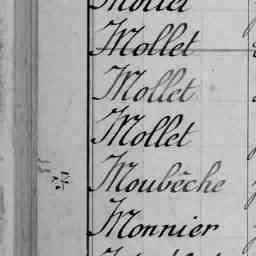 Mollet
Mollet
Mollet
Mollet
Moubêche
Monnier